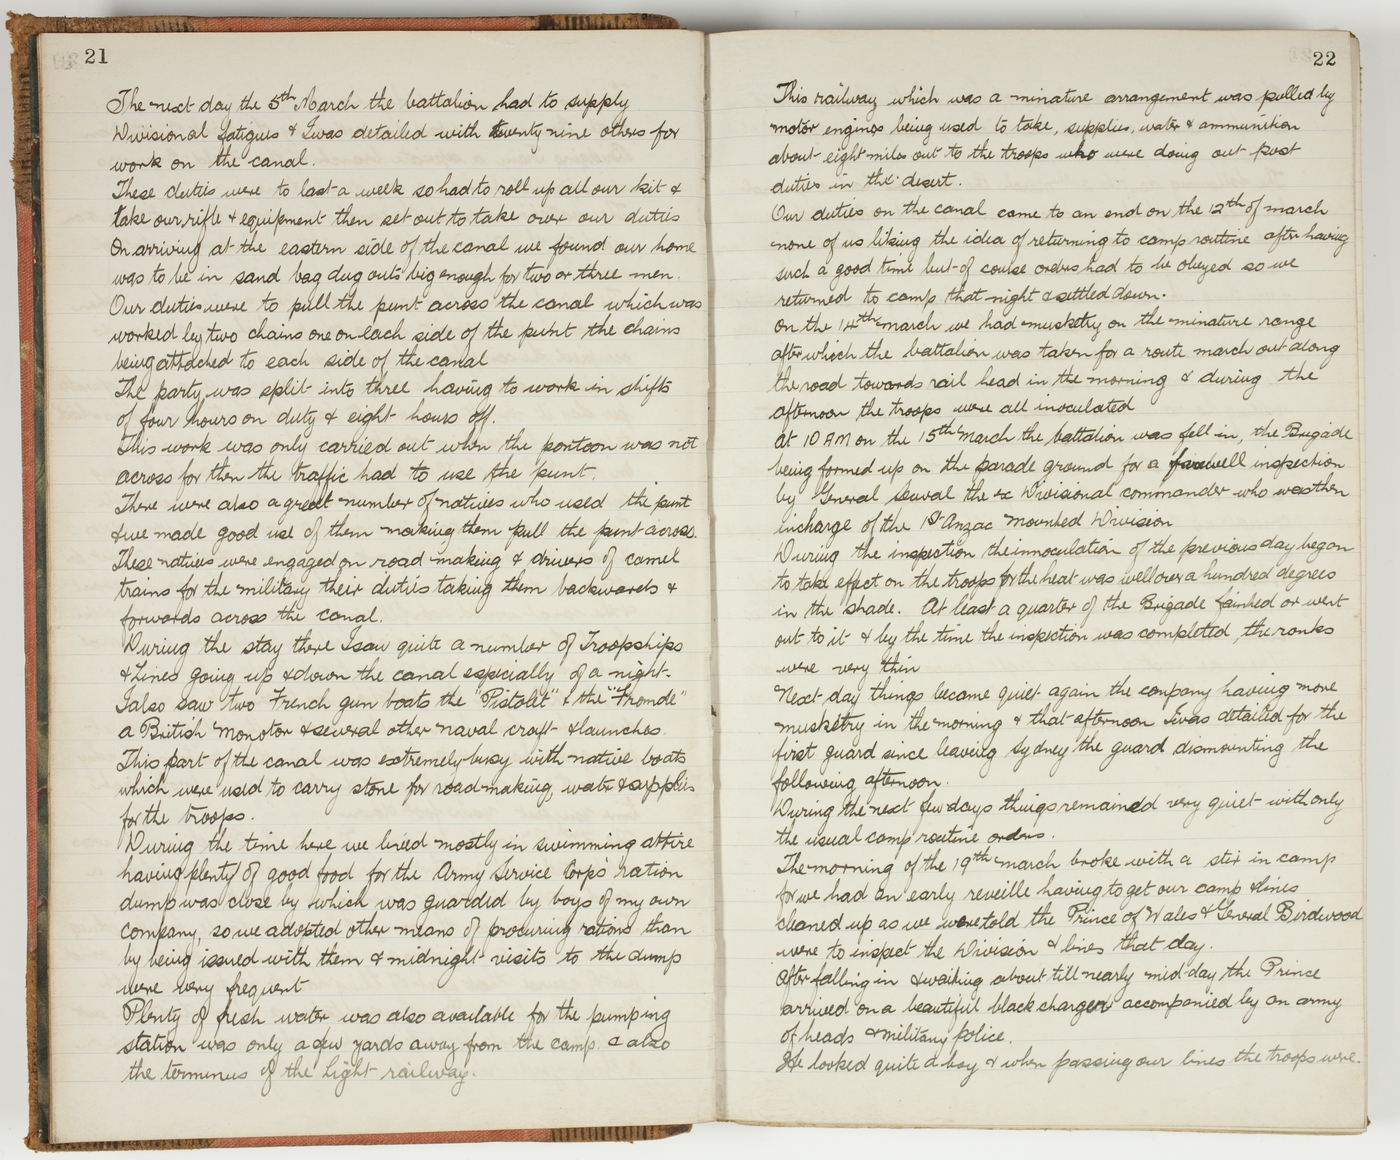 21
The next day the 5th March the battalion had to supply
Divisional fatigues & I was detailed with twenty nine others for
work on the canal.
These duties were to last a week so had to roll up all our kit &
take our rifle & equipment then set out to take over our duties
On arriving at the eastern side of the canal we found our home
was to be in sand bag dug outs big enough for two or three men.
Our duties were to pull the punt across the canal which was
worked by two chains one on each side of the punt the chains
being attached to each side of the canal
The party was split into three having to work in shifts
of four hours on duty & eight hours off.
This work was only carried out when the pontoon was not
across for then the traffic had to use the punt.
There were also a great number of natives who used the punt
& we made good use of them making them pull the punt across.
These natives were engaged on road making & drivers of camel
trains for the military their duties taking them backwards &
forwards across the canal.
During the stay there I saw quite a number of Troopships
& Lines going up & down the canal especially of a night.
I also saw two French gun boats the "Pistolet" & the "Fromde"
a British monotor & several other naval craft & launches.
This part of the canal was extremely busy with native boats
which were used to carry stone for road making, water & supplies
for the troops.
During the time here we lived mostly in swimming attire
having plenty of good food for the Army Service Corps ration
dump was close by which was guarded by boys of my own
company, so we adopted other means of procuring rations than
by being issued with them & midnight visits to the dump
were very frequent
Plenty of fresh water was also available for the pumping
station was only a few yards away from the camp. & also
the terminus of the light railway.
22
This railway which was a minature arrangement was pulled by
motor engines being used to take, supplies, water & ammunition
about eight miles out to the troops who were doing out post
duties in the desert.
Our duties on the canal came to an end on the 12th of march
none of us liking the idea of returning to camp routine after having
such a good time but of course orders had to be obeyed so we
returned to camp that night & settled down.
On the 14th march we had musketry on the minature range
after which the battalion was taken for a route march out along
the road towards rail head in the morning & during the
afternoon the troops were all inoculated
At 10 AM on the 15th March the battalion was fell in, the Brigade
being formed up on the parade ground for a farewell inspection
by General the ex Divisional commander who was then
incharge of the 1st Anzac Mounted Division
During the inspection the innoculation of the previous day began
to take effect on the troops for the heat was well over a hundred degrees
in the shade. At least a quarter of the Brigade fainted or went
out to it & by the time the inspection was completed the ranks
were very thin
Next day things became quiet again the company having more
musketry in the morning & that afternoon I was detailed for the
first guard since leaving Sydney the guard dismounting the
following afternoon.
During the next few days things remained very quiet with only
the usual camp routine orders.
The morning of the 19th march broke with a stir in camp
for we had an early reveille having to get our camp & lines
cleaned up as we were told the Prince of Wales & General Birdwood
were to inspect the Division & lines that day.
After falling in & waiting about till nearly mid-day the Prince
arrived on a beautiful black charger accompanied by an army
of heads & military police.
He looked quite a boy & when passing our lines the troops were.